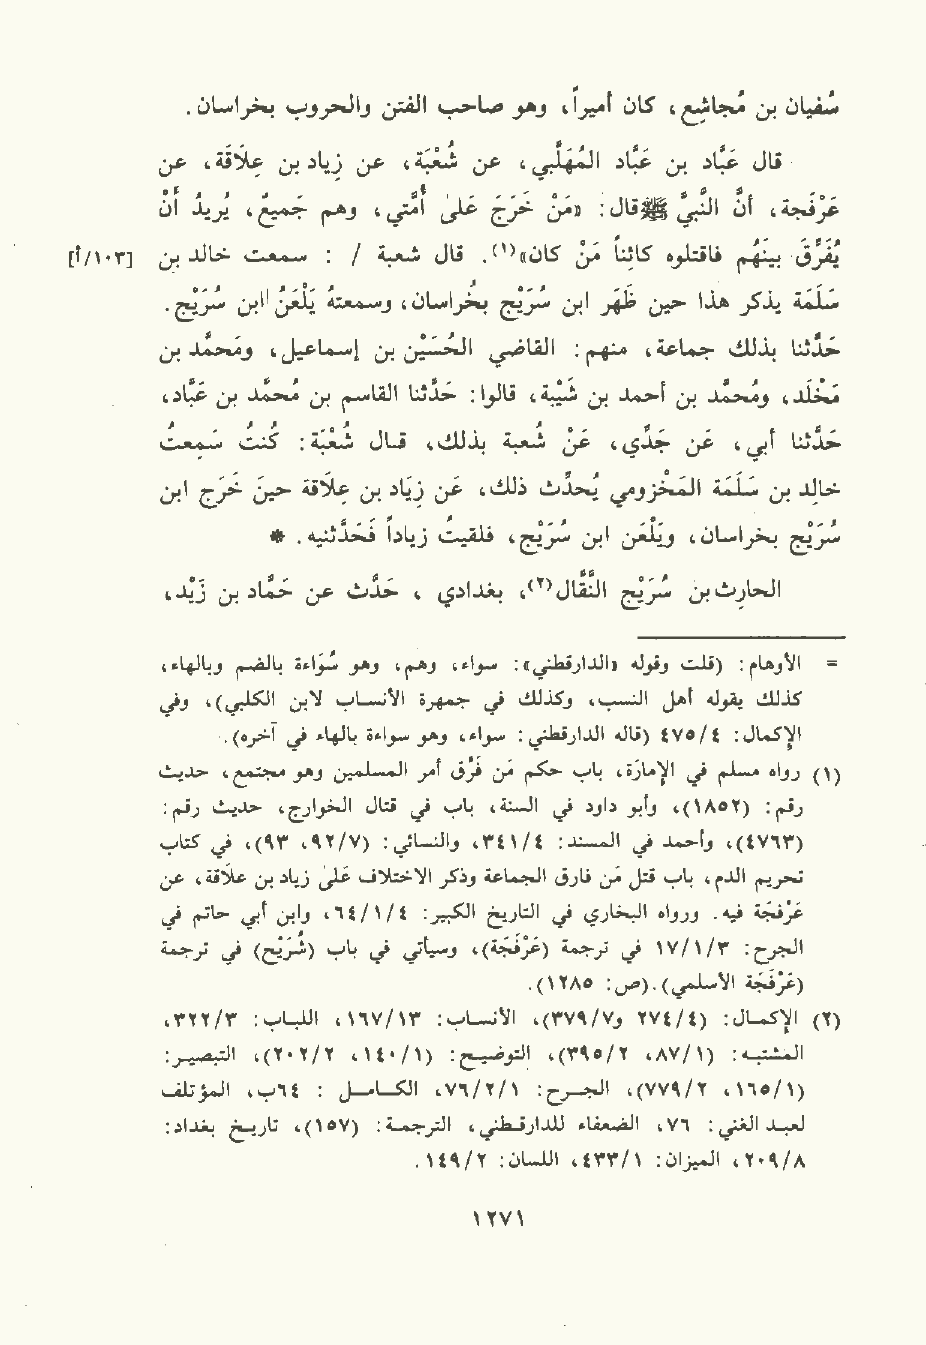 سُفيان بن مُجاشِع، كان أميراً، وهو صاحب الفتن والحروب بخراسان.
قال عَبَّاد بن عَبَّاد المُهَلَّبي، عن شُعْبَة، عن زِياد بن عِلَاقَة، عن
عَرْفَجة، أنَّ النبيَّ ﷺ قال: «مَنْ خَرَجَ عَلىٰ أُمَّتي، وهم جَميعٌ، يُريدُ أَنْ
يُفَرِّقَ بينَهُم فاقتلوه كائِناً مَنْ كان»(١). قال شعبة / : سمعت خالد بن [١٠٣/أ]
سَلَمَة يذكر هذا حين ظَهَر ابن سُرَيْج بخُراسان، وسمعتهُ يَلْعَنُ ابن سُرَيْج.
حَدَّثنا بذلك جماعة، منهم: القاضي الحُسَيْن بن إسماعيل، ومُحمَّد بن
مَخْلَد، ومُحمَّد بن أحمد بن شَيْبة، قالوا: حَدَّثنا القاسم بن مُحمَّد بن عَبَّاد،
حَدَّثنا أبي، عَن جَدِّي، عَنْ شُعبة بذلك، قال شُعْبَة: كُنتُ سَمِعتُ
خالِد بن سَلَمَة المَخْزومي يُحدِّث ذلك، عَن زِيَاد بن عِلَاقة حينَ خَرَجَ ابن
سُرَيْج بخراسان، ويَلْعَن ابن سُرَيْج، فلقيتُ زياداً فَحَدَّثنيه. *
الحارِث بن سُرَيْج النَّقَّال(٢)، بغدادي ، حَدَّث عن حَمَّاد بن زَيْد،
= الأوهام: (قلت وقوله «الدارقطني»: سواء، وهم، وهو سُوَاءة بالضم وبالهاء،
كذلك يقوله أهل النسب، وكذلك في جمهرة الأنساب لابن الكلبي)، وفي
الإكمال: ٤/ ٤٧٥ (قاله الدارقطني: سواء، وهو سواءة بالهاء في آخره).
(١) رواه مسلم في الإمارَة، باب حكم مَن فَرَّق أمر المسلمين وهو مجتمع، حديث
رقم: (١٨٥٢)، وأبو داود في السنة، باب في قتال الخوارج، حديث رقم:
(٤٧٦٣)، وأحمد في المسند: ٤/ ٣٤١، والنسائي: (٧/ ٩٢، ٩٣)، في كتاب
تحريم الدم، باب قتل مَن فارق الجماعة وذكر الاختلاف عَلىٰ زياد بن علاقة، عن
عَرْفَجَة فيه. ورواه البخاري في التاريخ الكبير: ٤/ ١/ ٦٤، وابن أبي حاتم في
الجرح: ٣/ ١/ ١٧ في ترجمة (عَرْفَجَة)، وسيأتي في باب (شُرَيْح) في ترجمة
(عَرْفَجَة الأسلمي).(ص: ١٢٨٥).
(٢) الإكمال: (٤/ ٢٧٤ و٧/ ٣٧٩)، الأنساب: ١٣/ ١٦٧، اللباب: ٣/ ٣٢٢،
المشتبه: (١/ ٨٧، ٢/ ٣٩٥)، التوضيح: (١/ ١٤٠، ٢/ ٢٠٢)، التبصير:
(١/ ١٦٥، ٢/ ٧٧٩)، الجرح: ١/ ٢/ ٧٦، الكامل : ٦٤ب، المؤتلف
لعبد الغني: ٧٦، الضعفاء للدارقطني، الترجمة: (١٥٧)، تاريخ بغداد:
٨/ ٢٠٩، الميزان: ١/ ٤٣٣، اللسان: ٢/ ١٤٩.
١٢٧١